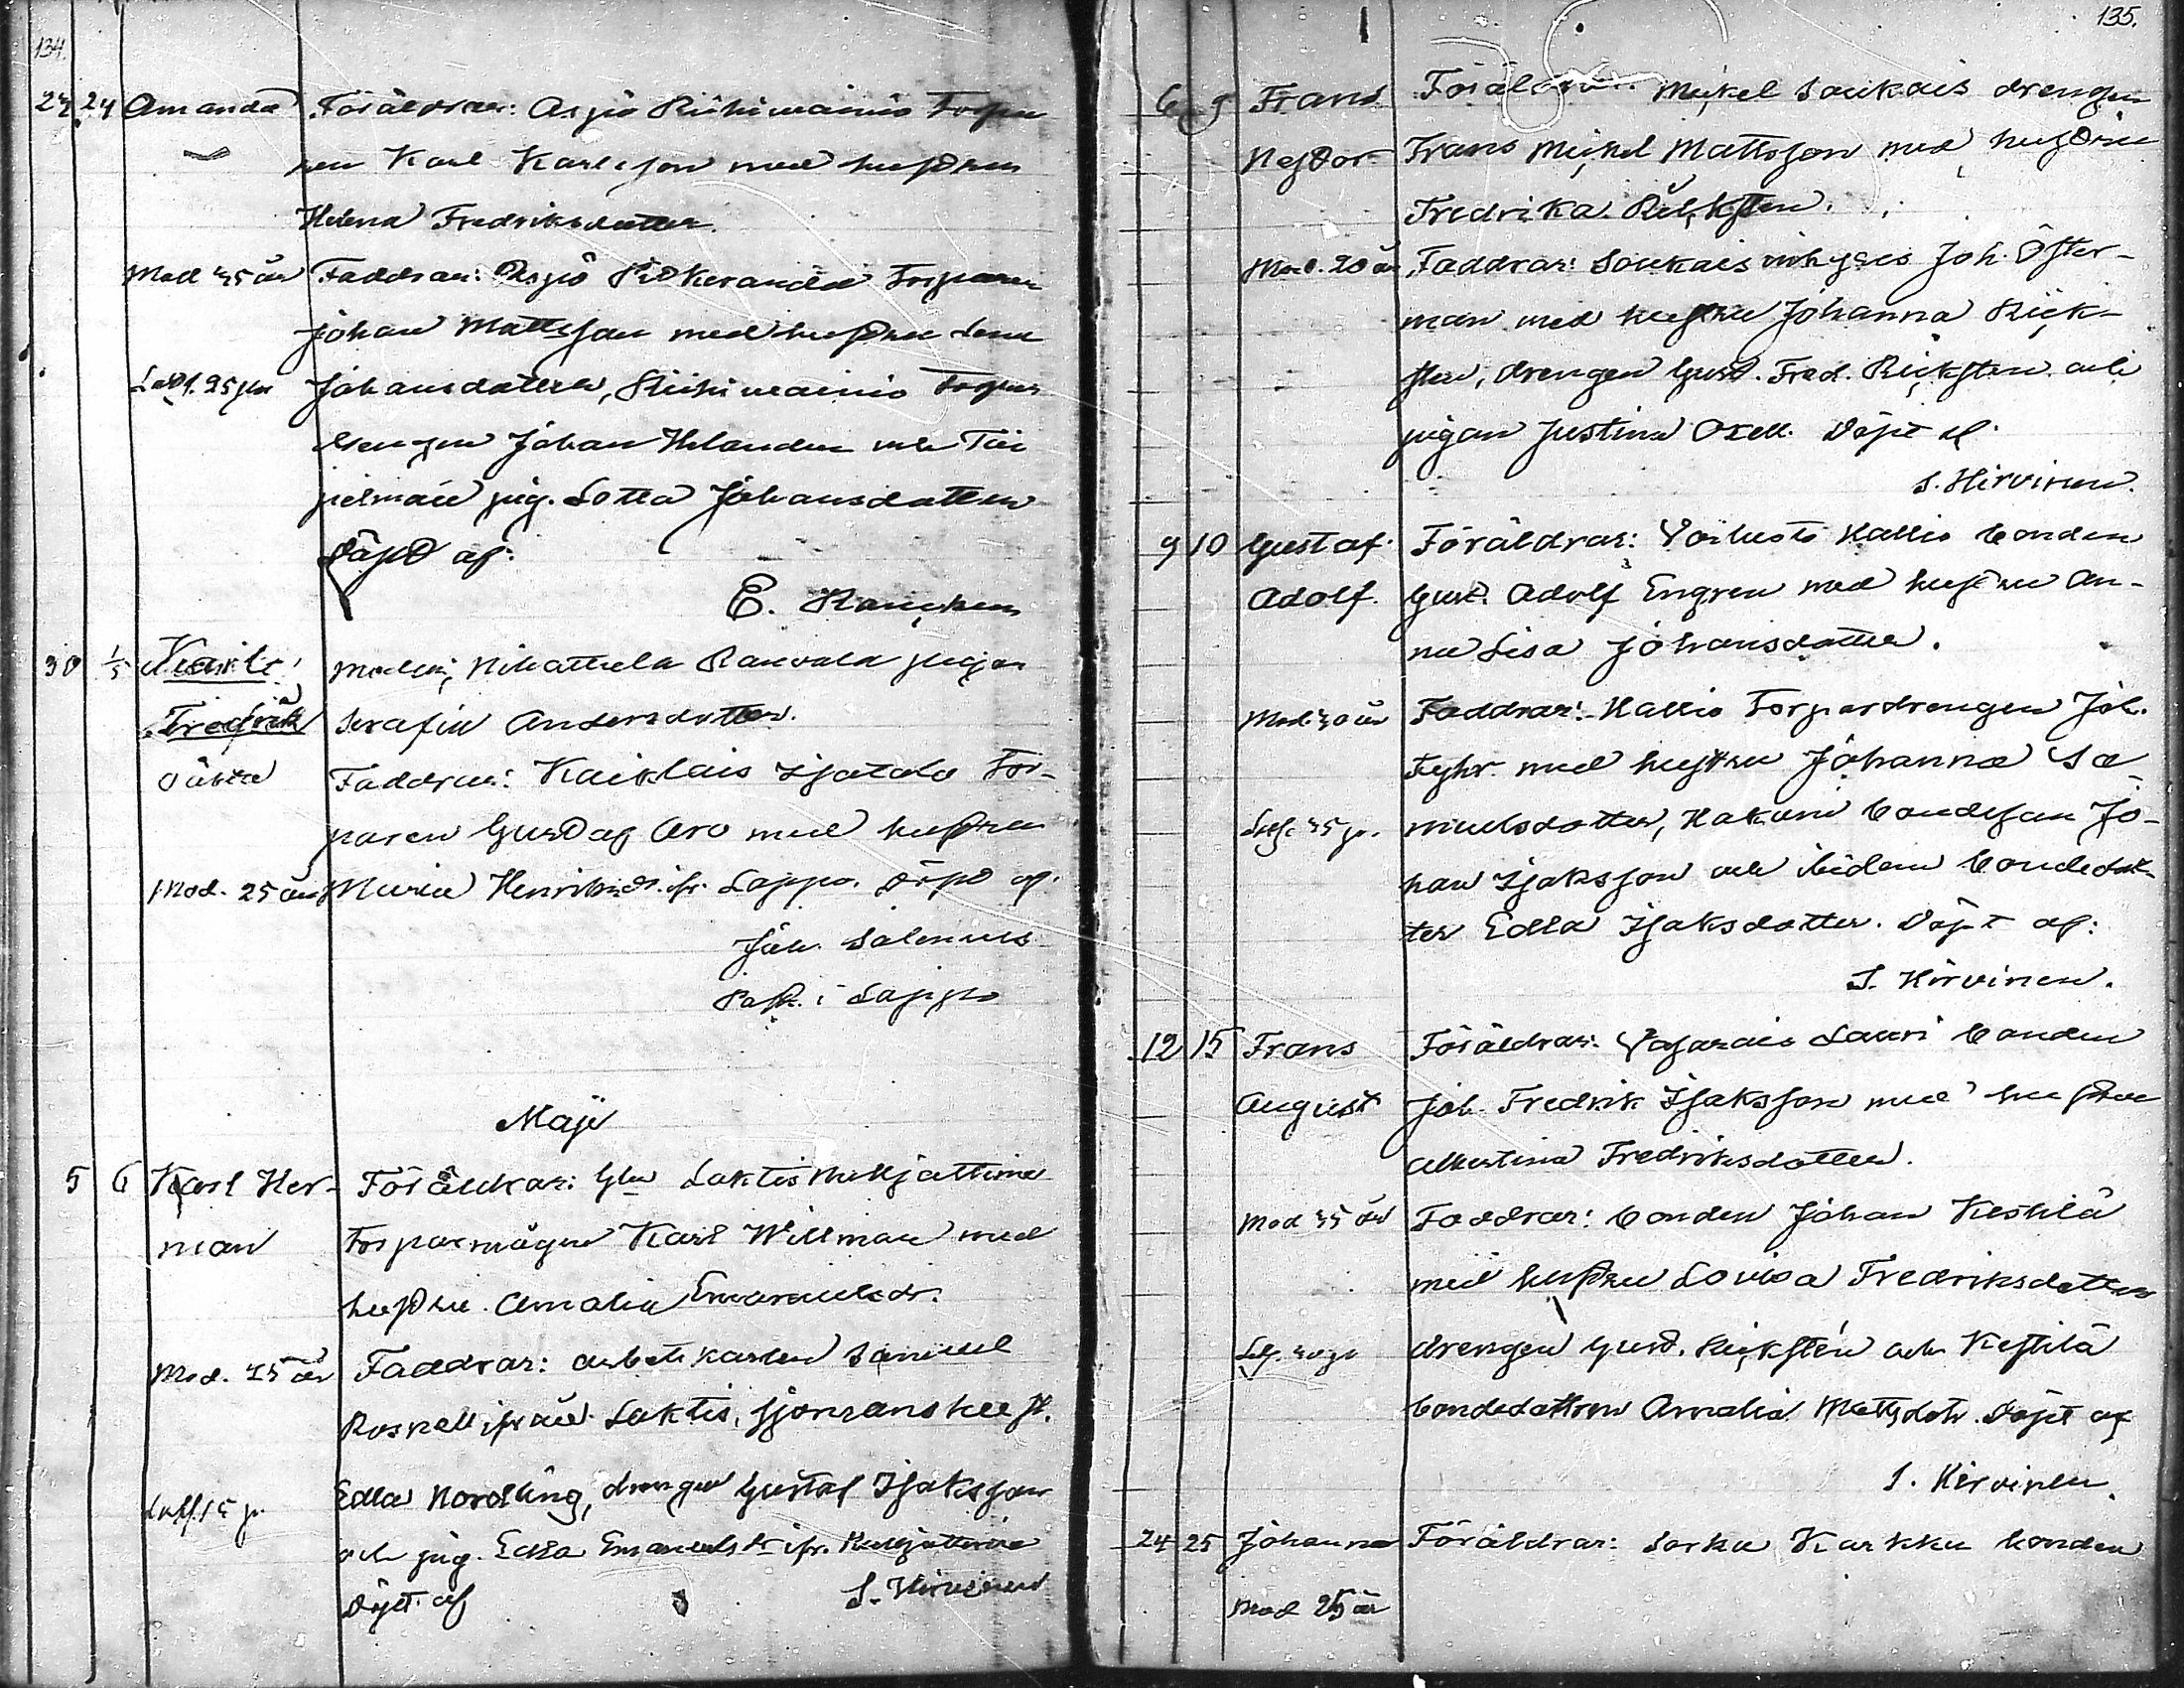 134.
24 24 Amanda Föräldrar: Asjö Riihimainio Torpa
ren Karl Karlsson med hustrun
Helena Fredriksdotter.
Mod 35 år Faddrar: Torparen
Johan Mattsson med hustru Lena
25 Johansdotter, Riihimainio Torpar
drengen Johan Helander och
pig. Lotta Johansdotter
Döpt af:
E.
30 1/5 Karl Modern, Ranvala pigan
Fredrik Serafia Andersdotter.
oäkta Faddrar: Kaiklais Isotalo Tor-
paren Gustaf Aro med hustru
Mod. 25 år Maria Henriksdr. ifr. Lappo. Döpt af.
Joh. Salenius
Past. i Lappo
Maji
5 6 Karl Her- Föräldrar: Laktis
man Torparmågen Karl Willman med
hustru Amalia Emanuelsdr.
Mod. 25 år Faddrar: arbetskarlen Samuel
Rosnell ifrån Laktis,
Edla Nordling, drengen Gustaf Isaksson
och pig. Edla Emanuelsdr ifr.
Döpt af S. Hirvinen
135.
6 9 Frans Föräldrar: Mickel Soukais drengen
Nestor Frans Mickel Mattsson med hustru
Fredrika Rücksten.
Mod. 20 år Faddrar: Soukais inhyses Joh. Öster-
man med hustru Johanna Rück-
sten, drengen Gust. Fred. Rücksten och
pigan Justina Oxell. Döpt af.
S. Hirvinen.
9 10 Gustaf Föräldrar: Voiluoto Kallio bonden
Adolf. Gust. Adolf Engren med hustru An-
na Lisa Johansdotter.
Mod. 30 år Faddrar: Kallio Torpardrengen Joh.
Fyhr med hustru Johanna Sa-
muelsdotter, Kakuri bondesson Jo-
han Isaksson och ibidem bondedot-
ter Edla Isaksdotter. Döpt af:
S. Hirvinen.
12 15 Frans Föräldrar: Vaharais Lauri bonden
August Joh. Fredrik Isaksson med hustru
Albertina Fredriksdotter.
Mod 35 år Faddrar: bonden Johan Keskilä
med hustru Lovisa Fredriksdotter
drengen Gust. Rücksten och Kestilä
bondedottren Amalia Mattsdotr. Döpt af
S. Hirvinen.
24 25 Johanna Föräldrar: Sorku Karkku bonden
Mod 25 år